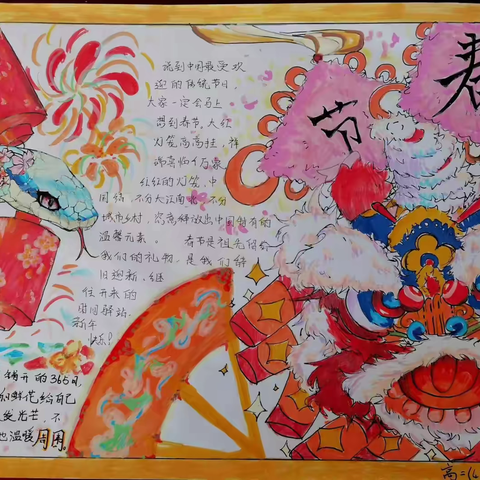 春
节
说到中国最受欢
迎的传统节日，
大家一定会马上
想到春节。大红
灯笼高高挂，祥
瑞喜怕千万象
红红的灯笼，中
国结，不分大江南北，不分
城市乡村，窈商鲜放出中国独有的
温馨元素。春节是祖先留给
我们的礼物，是我们辞
旧迎新、继
往开来的
时间驿站。
新年
快乐！
销开的365日，
鲜花给自己
发光芒，不
也温暖周围。
高二(4